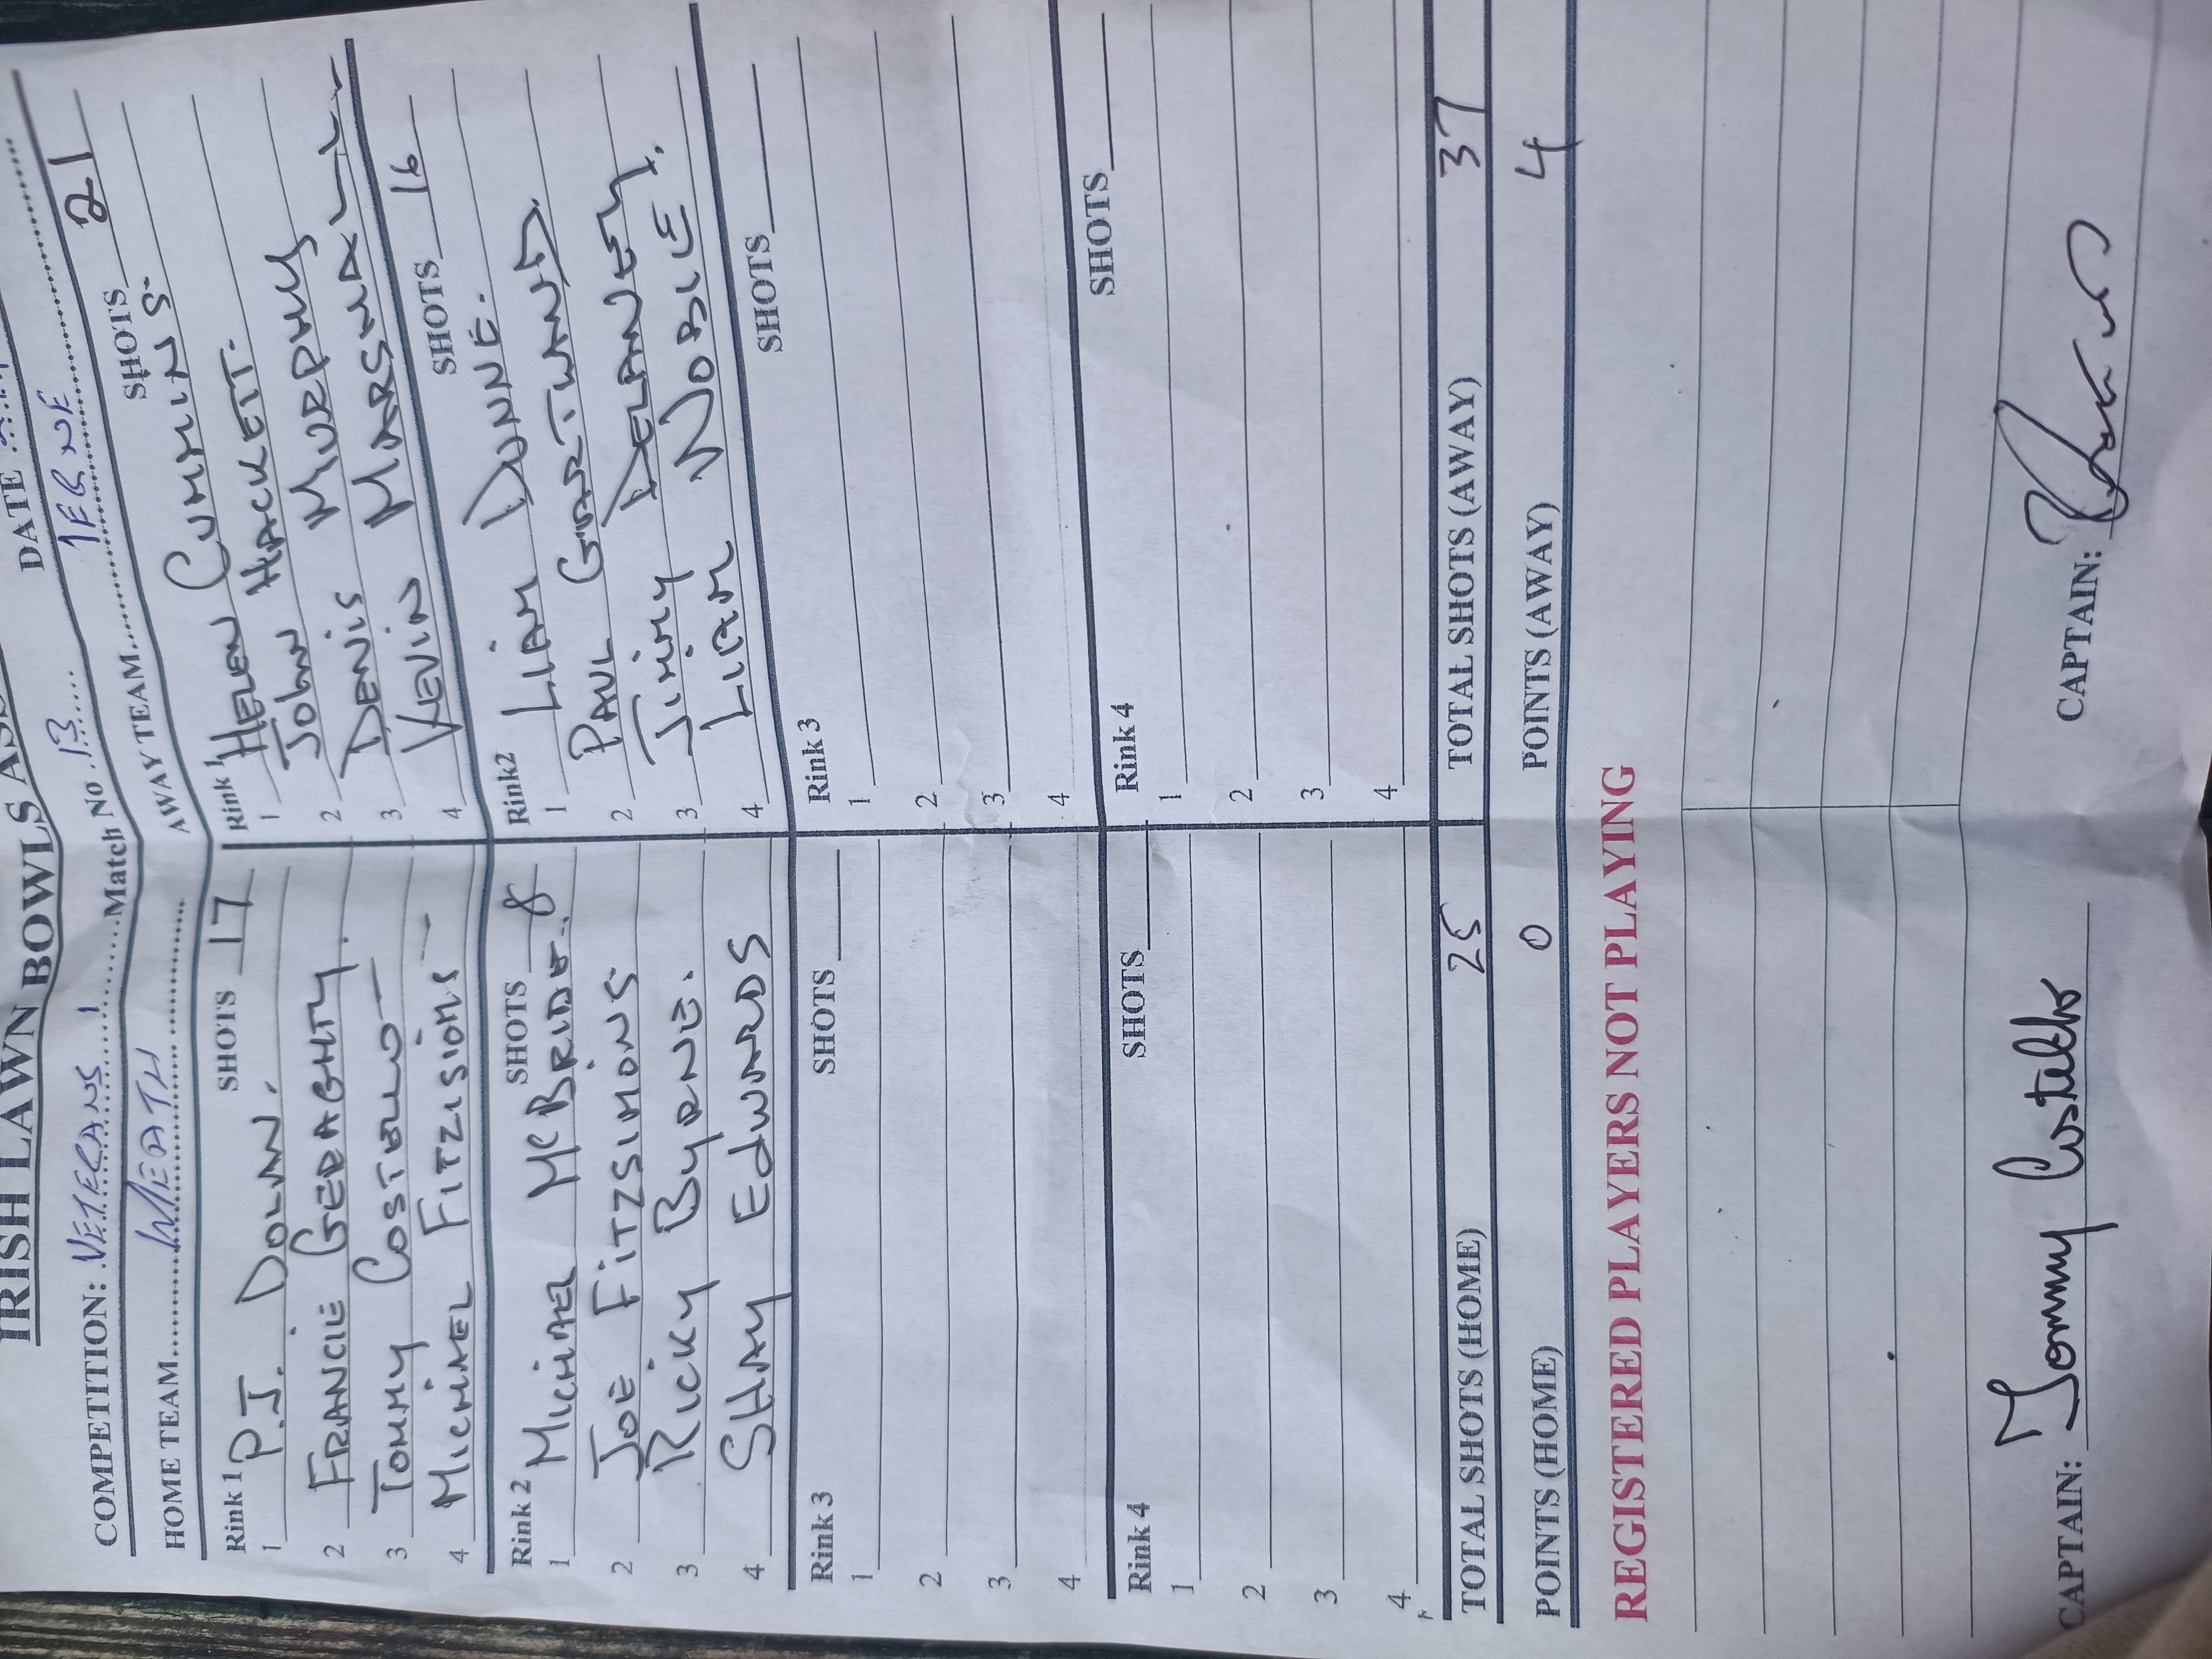 IRISH LAWN BOWLS
DATE
COMPETITION: VETERANS 1 Match No 13 IERNE
HOME TEAM MEATH AWAY TEAM
Rink 1 SHOTS 17
1 P.J. DOLAN.
2 FRANCIE GERAGHTY.
3 TOMMY COSTELLO
4 MICHAEL FITZISIONS
Rink 1 SHOTS 21
1 HELEN CUMMINS.
2 JOHN HACKETT.
3 DENIS MURPHY
4 KEVIN MARSHALL
Rink 2 SHOTS 8
1 MICHAEL MCBRIDE.
2 JOE FITZSIMONS
3 RICKY BYRNE.
4 SHAY EDWARDS
Rink2 SHOTS 16
1 LIAM DUNNE.
2 PAUL
3 JIMMY DELANEY.
4 LIAM NOBLE
Rink 3 SHOTS
1
2
3
4
Rink 3 SHOTS
1
2
3
4
Rink 4 SHOTS
1
2
3
4
Rink 4 SHOTS
1
2
3
4
TOTAL SHOTS (HOME) 25 TOTAL SHOTS (AWAY) 37
POINTS (HOME) 0 POINTS (AWAY) 4
REGISTERED PLAYERS NOT PLAYING
CAPTAIN: Tommy Costello CAPTAIN: